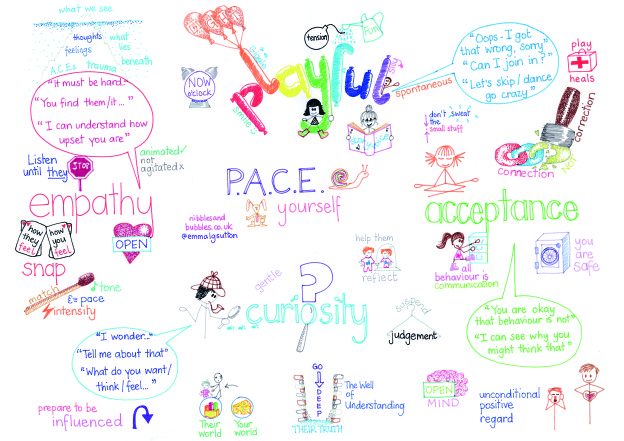 what we see
thoughts
feelings
what
lies
beneath
A.C.Es trauma
"It must be hard."
"You find them/it..."
"I can understand how
upset you are"
Listen
until they
STOP
animated✓
not
agitated x
empathy
how
they
feel
how
you
feel
OPEN
snap
match
tone
pace
intensity
NOW
o'clock
playful
tension
fun
spontaneous
"Oops - I got
that wrong, sorry"
"Can I join in?"
"Let's skip/dance
go crazy"
play
heals
don't sweat
the
small stuff
correction
connection
P.A.C.E.
yourself
nibblesand
bubbles.co.uk
@emmalgsutton
acceptance
all
behaviour is
communication
you
are
safe
"You are okay
that behaviour is not"
"I can see why you
might think that"
help them
reflect
gentle
?
curiosity
suspend
judgement
"I wonder..."
"Tell me about that"
"What do you want/
think/feel..."
prepare to be
influenced
Their
world
Your
world
GO
DEEP
THEIR TRUTH
The Well
of
Understanding
OPEN
MIND
unconditional
positive
regard